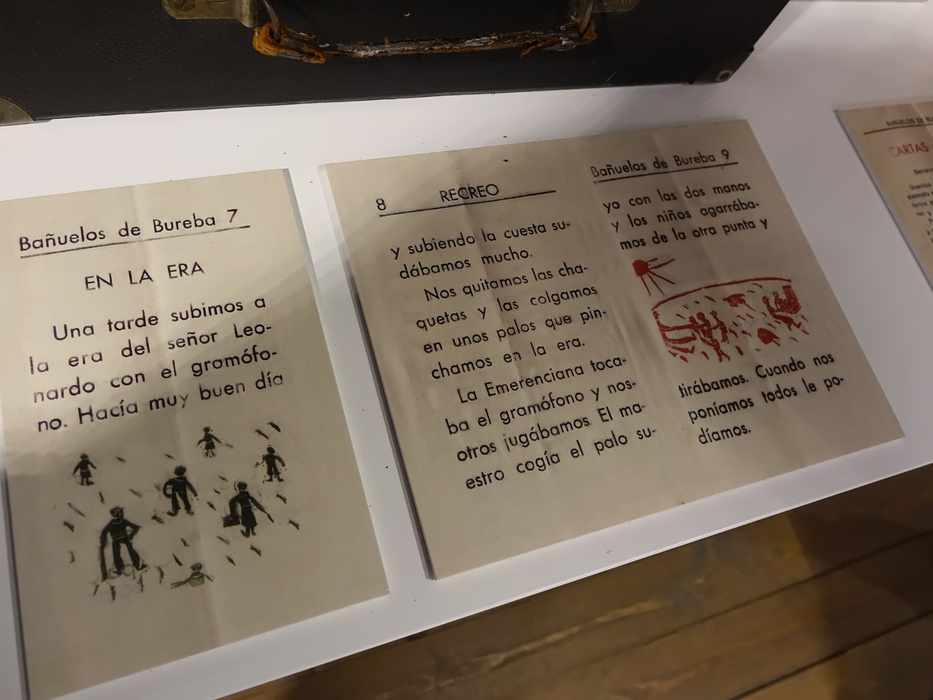 Bañuelos de Bureba 7
EN LA ERA
Una tarde subimos a
la era del señor Leo-
nardo con el gramófo-
no. Hacía muy buen día
8 RECREO
y subiendo la cuesta su-
dábamos mucho.
Nos quitamos las cha-
quetas y las colgamos
en unos palos que pin-
chamos en la era.
La Emerenciana toca-
ba el gramófono y nos-
otros jugábamos. El ma-
estro cogía el palo su-
Bañuelos de Bureba 9
yo con las dos manos
y los niños agarrába-
mos de la otra punta y
tirábamos. Cuando nos
poníamos todos le po-
díamos.
BAÑUELOS DE BU
CARTAS